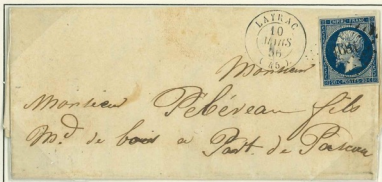 LAYRAC
10
MARS
56
(45)
EMPIRE FRANC.
Monsieur
Monsieur Pébéreau fils
Md de bois a Port de Pascau